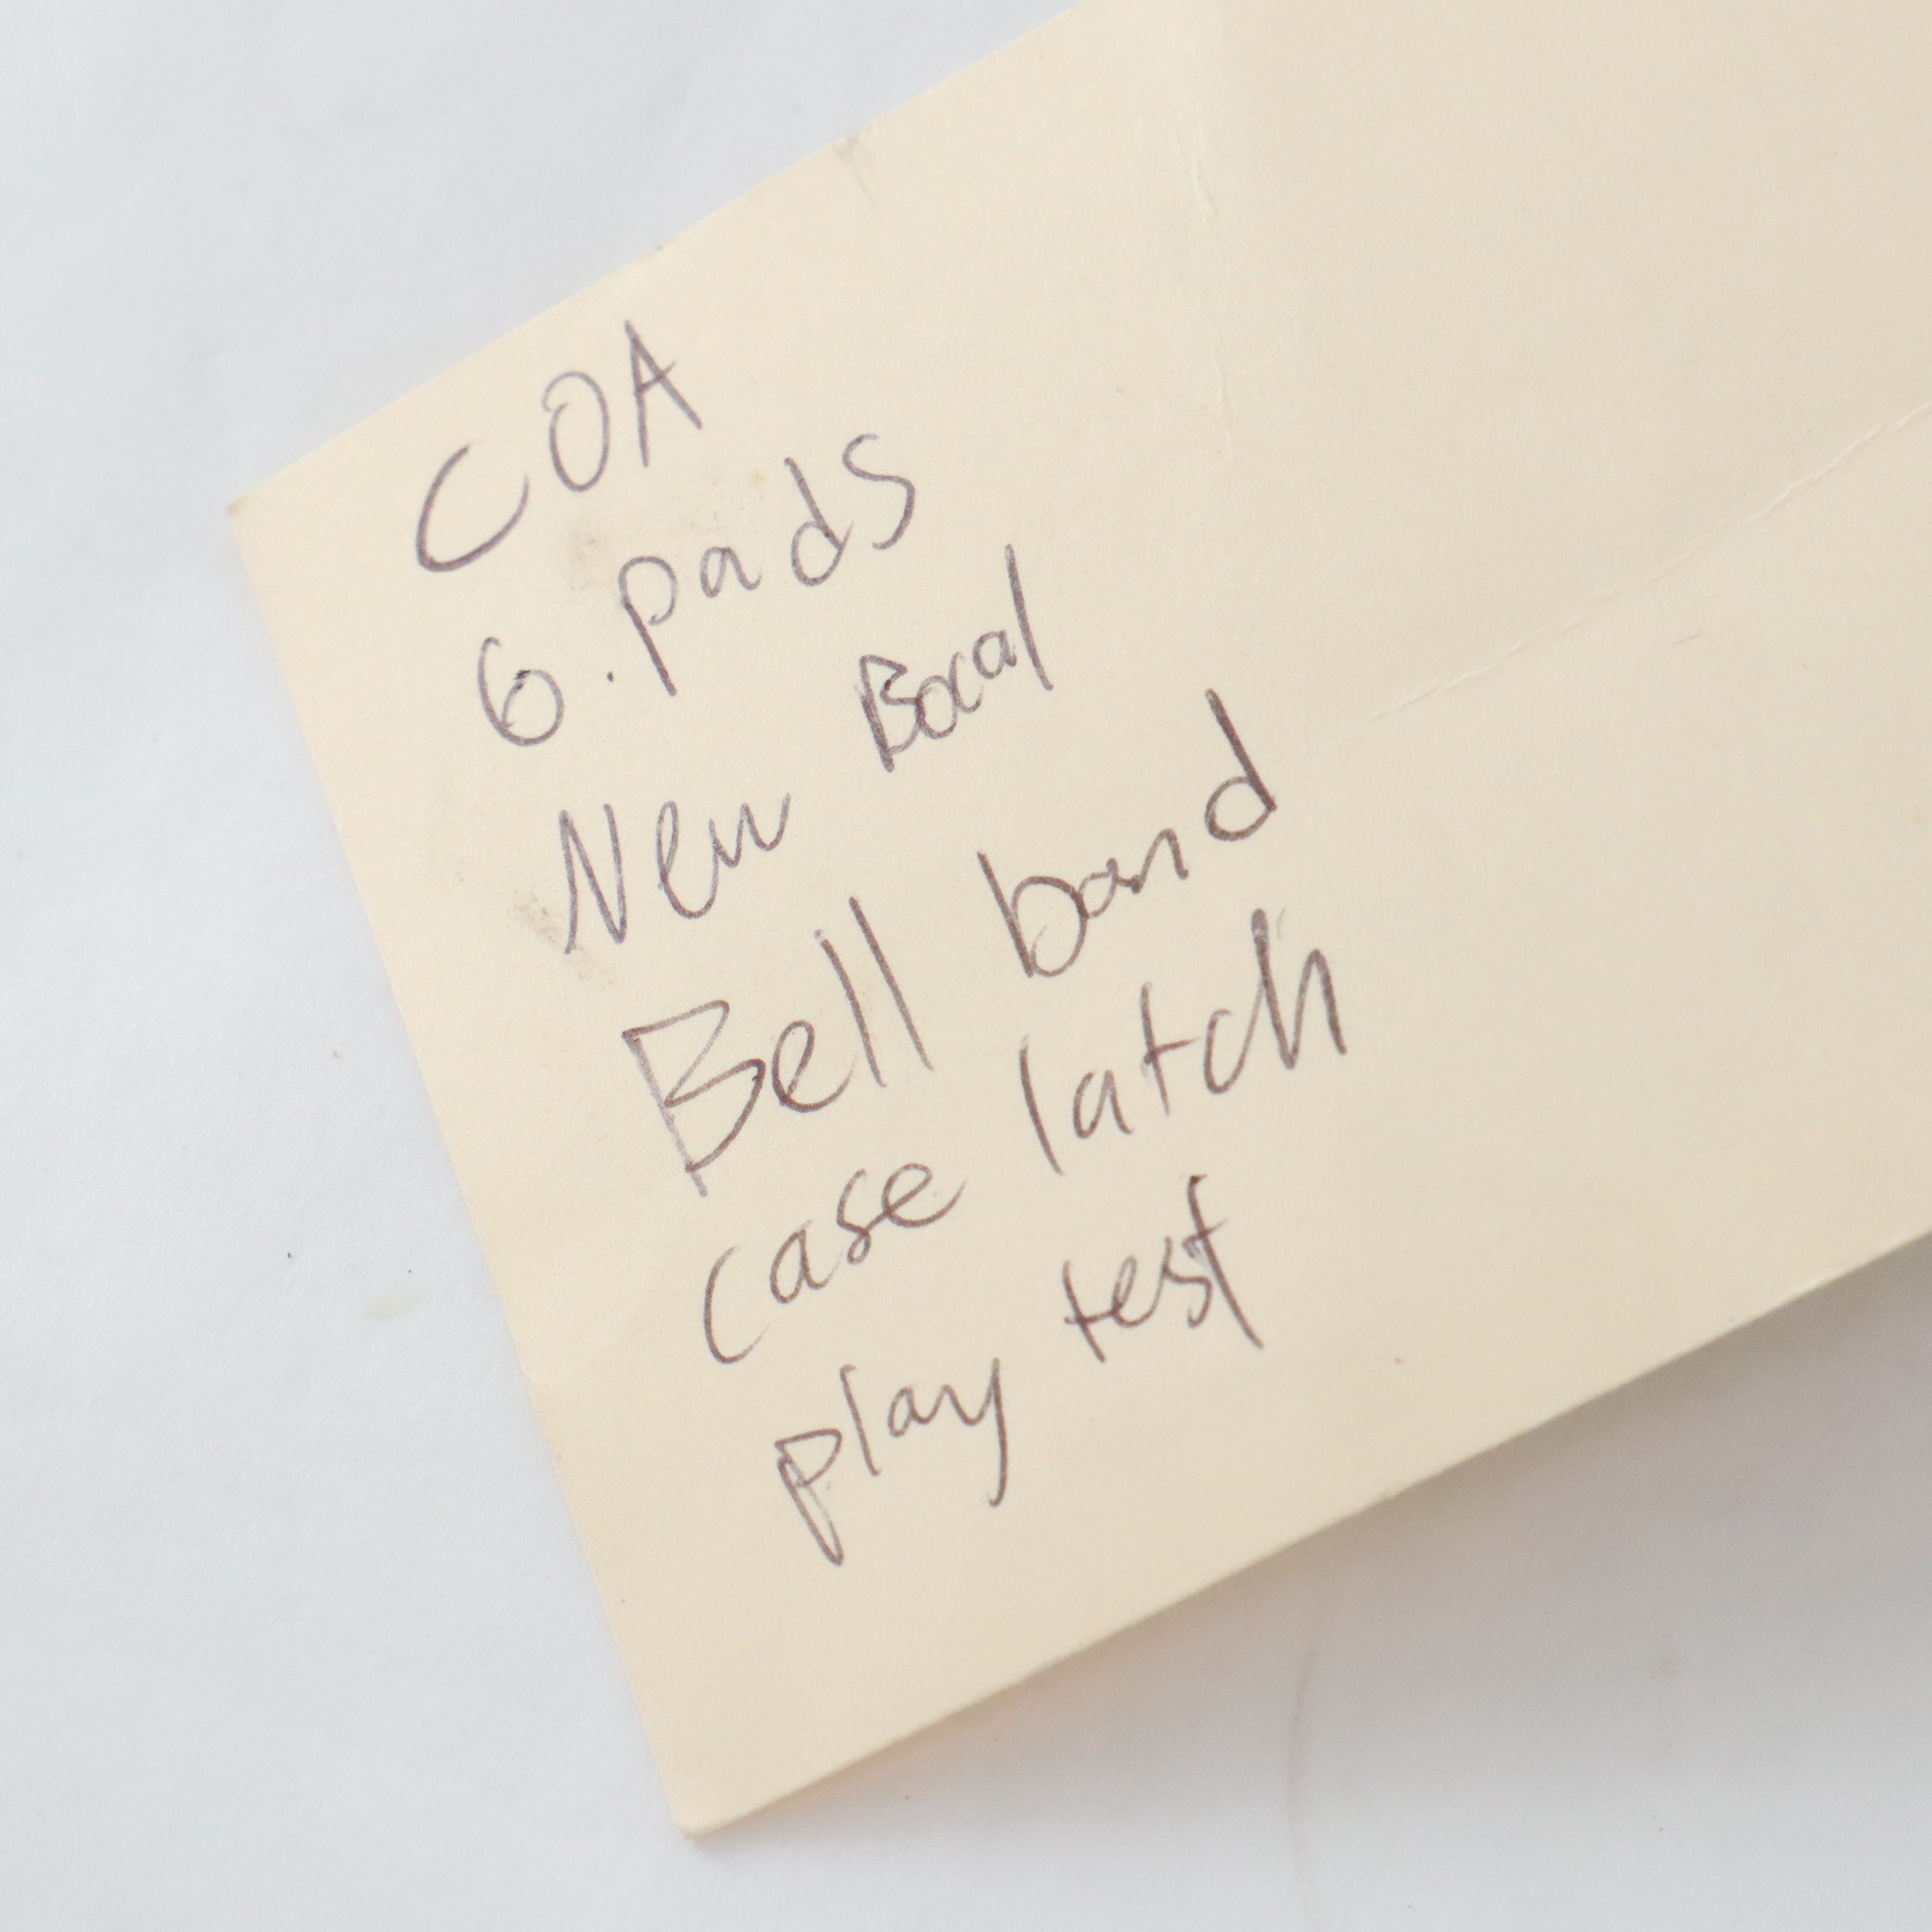 COA
6. pads
New Bocal
Bell band
case latch
play test